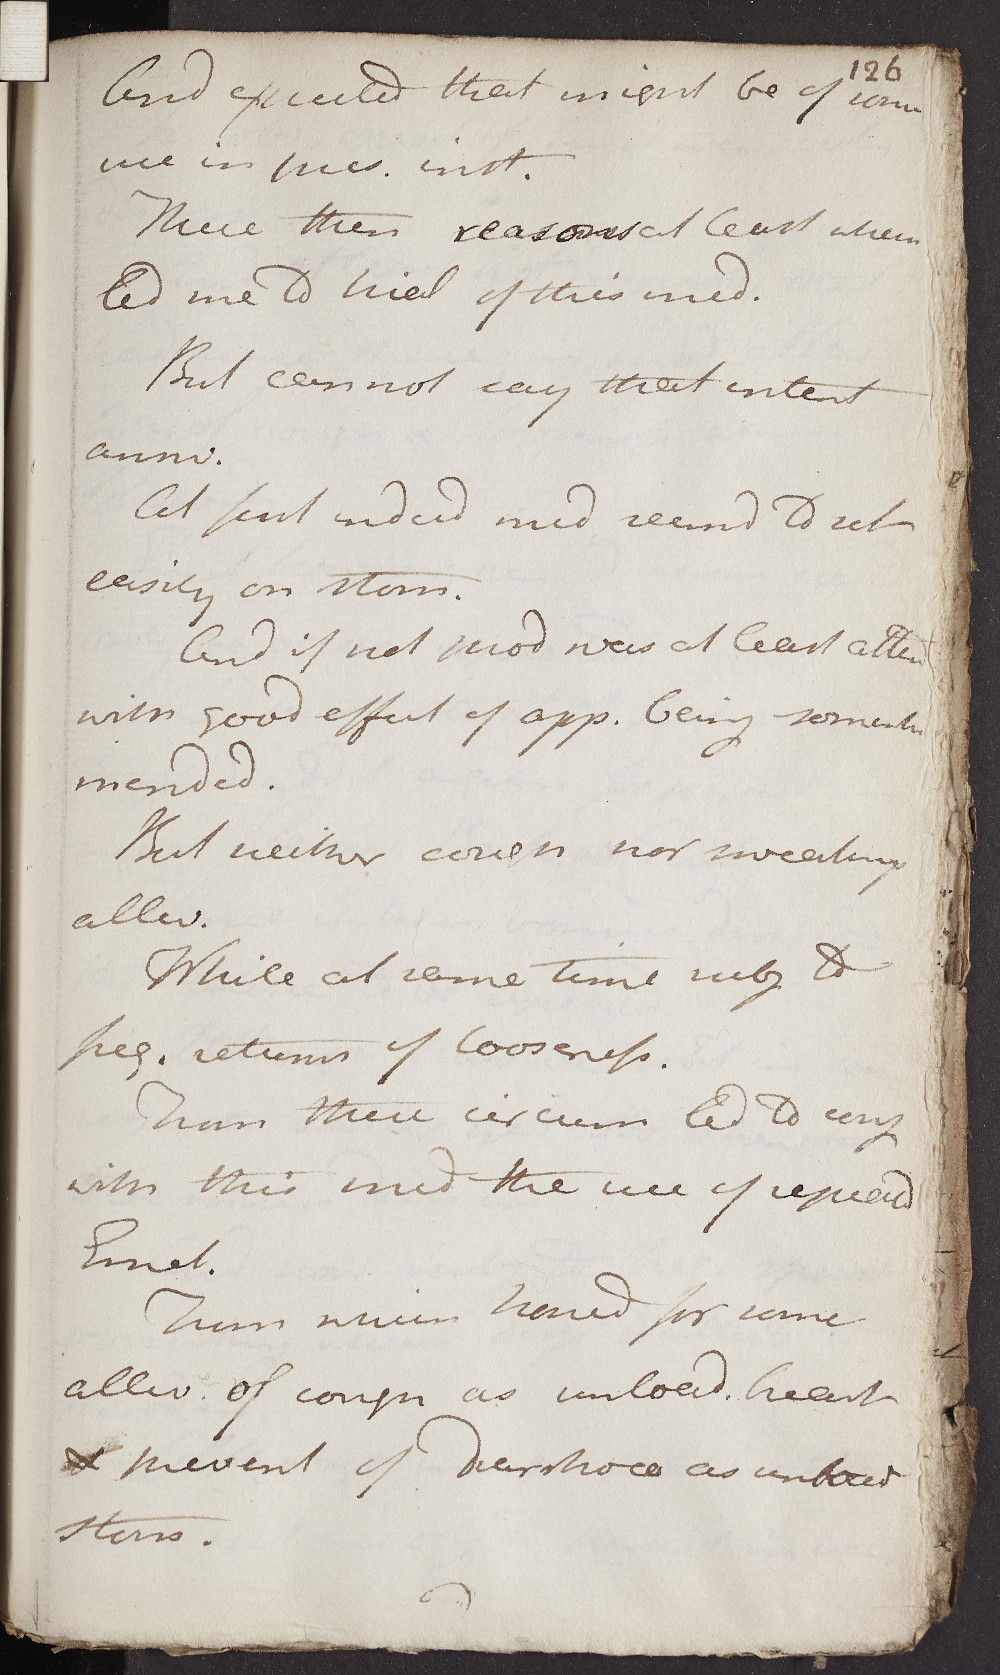 126
And expected that might be of some
use in pres. inst.
These then reasons at least which
led me to trial of this med.
But cannot say that intent
answ.
At first indeed med seemd to set
easily on stom.
And if not prod was at least atten
with good effect of app. being somewh
mended.
But neither cough nor sweating
allev.
While at same time subj to
freq. returns of looseness.
From these circum led to conj
with this med the use of repeatd
Emet.
From which hoped for some
allev. of cough as unload. breast
& prevent of diarrhoea as unload
stom.